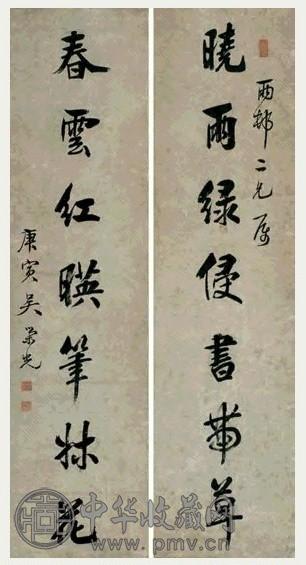 曉雨緑侵書帶草
雨邨二兄属
春雲紅暎筆牀花
庚寅吴榮光
中华收藏网
www.pmv.cn